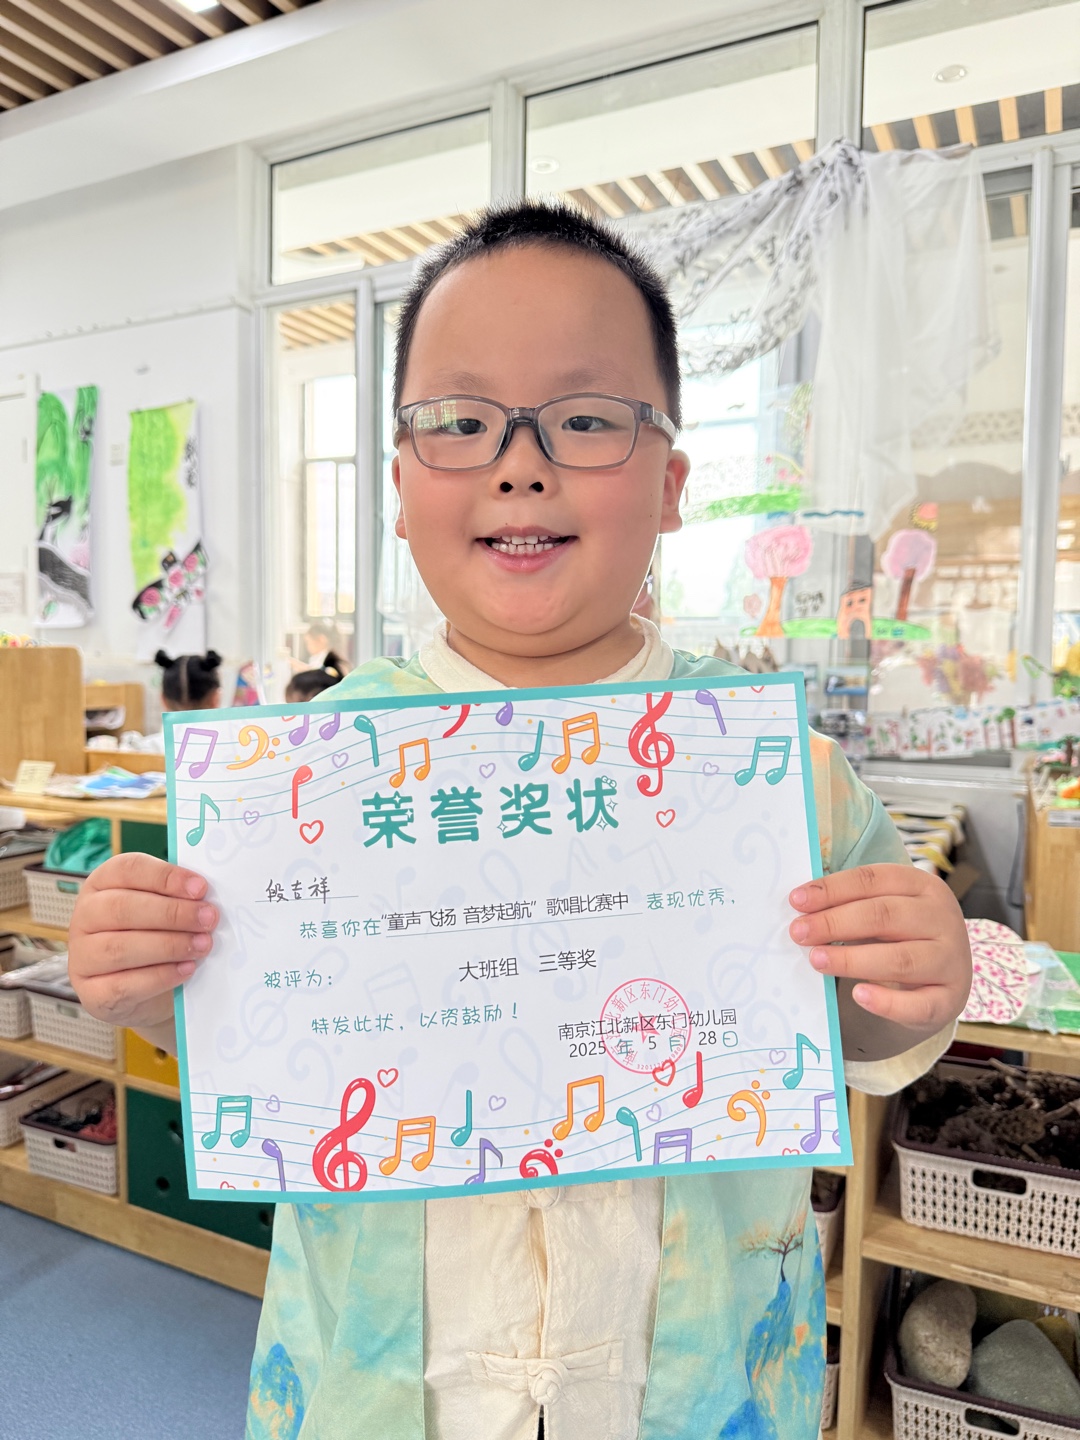 荣誉奖状
段吉祥
恭喜你在“童声飞扬 音梦起航”歌唱比赛中 表现优秀，
被评为：
大班组 三等奖
特发此状，以资鼓励！
南京江北新区东门幼儿园
2025 年 5 月 28 日